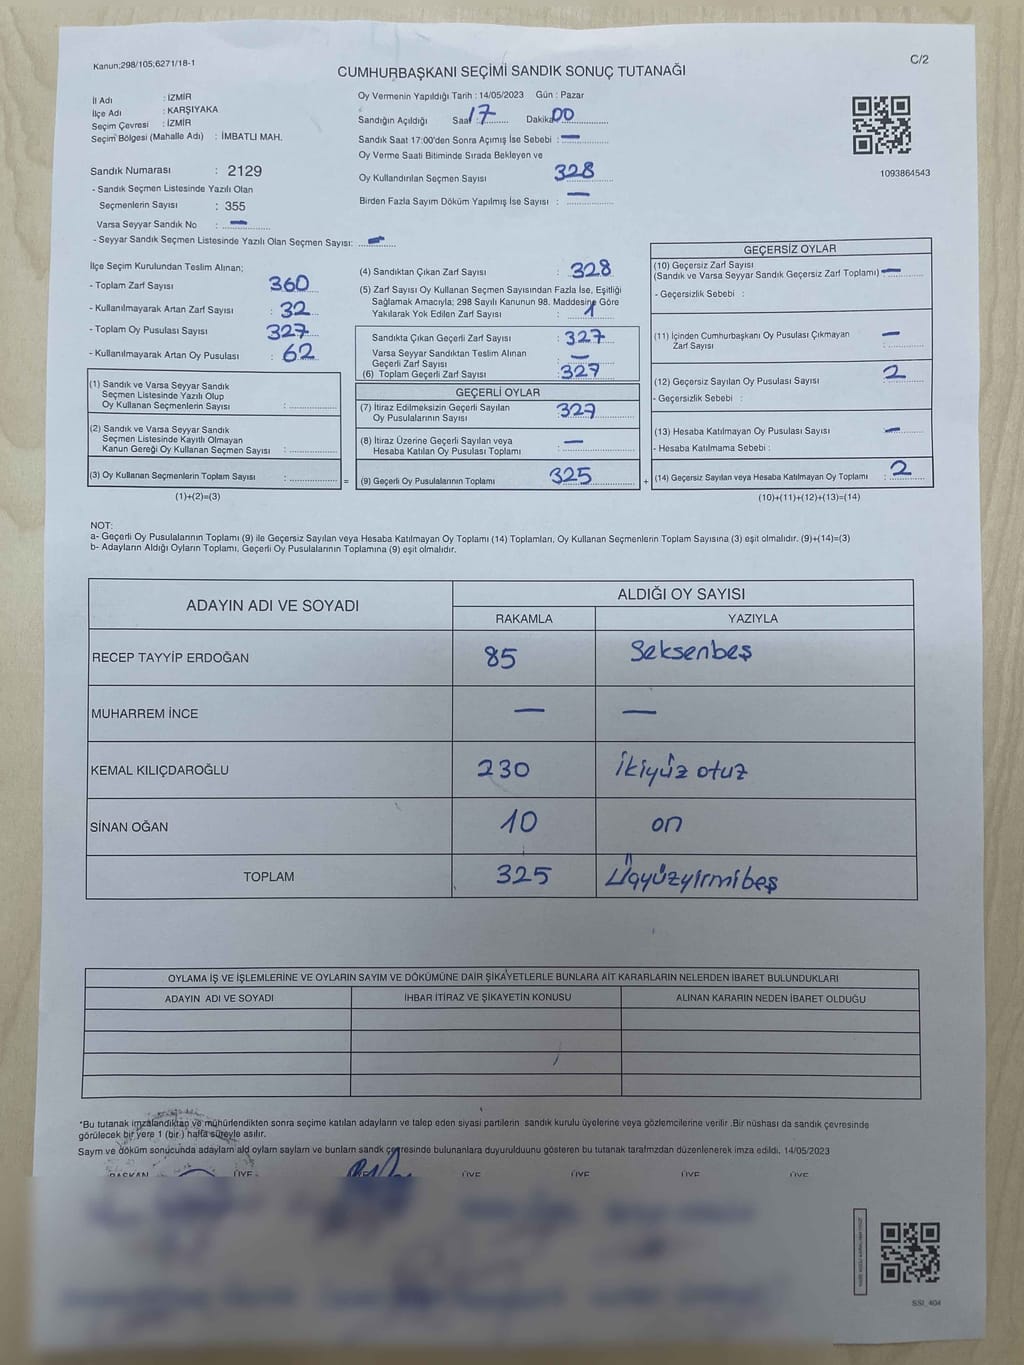 Kanun;298/105;6271/18-1
C/2
CUMHURBAŞKANI SEÇİMİ SANDIK SONUÇ TUTANAĞI
İl Adı : İZMİR
İlçe Adı : KARŞIYAKA
Seçim Çevresi : İZMİR
Seçim Bölgesi (Mahalle Adı) : İMBATLI MAH.
Sandık Numarası : 2129
- Sandık Seçmen Listesinde Yazılı Olan
Seçmenlerin Sayısı : 355
Varsa Seyyar Sandık No : —
- Seyyar Sandık Seçmen Listesinde Yazılı Olan Seçmen Sayısı: —
Oy Vermenin Yapıldığı Tarih : 14/05/2023 Gün : Pazar
Sandığın Açıldığı Saat 17 Dakika 00
Sandık Saat 17:00'den Sonra Açımış İse Sebebi : —
Oy Verme Saati Bitiminde Sırada Bekleyen ve
Oy Kullandırılan Seçmen Sayısı 328
Birden Fazla Sayım Döküm Yapılmış İse Sayısı : —
1093864543
İlçe Seçim Kurulundan Teslim Alınan;
- Toplam Zarf Sayısı 360
- Kullanılmayarak Artan Zarf Sayısı : 32
- Toplam Oy Pusulası Sayısı 327
- Kullanılmayarak Artan Oy Pusulası : 62
(1) Sandık ve Varsa Seyyar Sandık
Seçmen Listesinde Yazılı Olup
Oy Kullanan Seçmenlerin Sayısı :
(2) Sandık ve Varsa Seyyar Sandık
Seçmen Listesinde Kayıtlı Olmayan
Kanun Gereği Oy Kullanan Seçmen Sayısı :
(3) Oy Kullanan Seçmenlerin Toplam Sayısı : =
(1)+(2)=(3)
(4) Sandıktan Çıkan Zarf Sayısı : 328
(5) Zarf Sayısı Oy Kullanan Seçmen Sayısından Fazla İse, Eşitliği
Sağlamak Amacıyla; 298 Sayılı Kanunun 98. Maddesine Göre
Yakılarak Yok Edilen Zarf Sayısı : 1
Sandıkta Çıkan Geçerli Zarf Sayısı : 327
Varsa Seyyar Sandıktan Teslim Alınan
Geçerli Zarf Sayısı : —
(6) Toplam Geçerli Zarf Sayısı : 327
GEÇERLİ OYLAR
(7) İtiraz Edilmeksizin Geçerli Sayılan
Oy Pusulalarının Sayısı 327
(8) İtiraz Üzerine Geçerli Sayılan veya
Hesaba Katılan Oy Pusulası Toplamı —
(9) Geçerli Oy Pusulalarının Toplamı 325 +
GEÇERSİZ OYLAR
(10) Geçersiz Zarf Sayısı
(Sandık ve Varsa Seyyar Sandık Geçersiz Zarf Toplamı) —
- Geçersizlik Sebebi :
(11) İçinden Cumhurbaşkanı Oy Pusulası Çıkmayan —
Zarf Sayısı
(12) Geçersiz Sayılan Oy Pusulası Sayısı : 2
- Geçersizlik Sebebi :
(13) Hesaba Katılmayan Oy Pusulası Sayısı —
- Hesaba Katılmama Sebebi :
(14) Geçersiz Sayılan veya Hesaba Katılmayan Oy Toplamı : 2
(10)+(11)+(12)+(13)=(14)
NOT:
a- Geçerli Oy Pusulalarının Toplamı (9) ile Geçersiz Sayılan veya Hesaba Katılmayan Oy Toplamı (14) Toplamları, Oy Kullanan Seçmenlerin Toplam Sayısına (3) eşit olmalıdır. (9)+(14)=(3)
b- Adayların Aldığı Oyların Toplamı, Geçerli Oy Pusulalarının Toplamına (9) eşit olmalıdır.
ADAYIN ADI VE SOYADI
ALDIĞI OY SAYISI
RAKAMLA YAZIYLA
RECEP TAYYİP ERDOĞAN 85 Seksenbeş
MUHARREM İNCE — —
KEMAL KILIÇDAROĞLU 230 İkiyüz otuz
SİNAN OĞAN 10 on
TOPLAM 325 Üçyüzyirmibeş
OYLAMA İŞ VE İŞLEMLERİNE VE OYLARIN SAYIM VE DÖKÜMÜNE DAİR ŞİKAYETLERLE BUNLARA AİT KARARLARIN NELERDEN İBARET BULUNDUKLARI
ADAYIN ADI VE SOYADI İHBAR İTİRAZ VE ŞİKAYETİN KONUSU ALINAN KARARIN NEDEN İBARET OLDUĞU
*Bu tutanak imzalandıktan ve mühürlendikten sonra seçime katılan adayların ve talep eden siyasi partilerin sandık kurulu üyelerine veya gözlemcilerine verilir .Bir nüshası da sandık çevresinde
görülecek bir yere 1 (bir ) hafta süreyle asılır.
Sayım ve döküm sonucunda adayların ald oyların sayların ve bunlarım sandık çevresinde bulunanlara duyurulduunu gösteren bu tutanak tarafmzdan düzenlenerek imza edildi. 14/05/2023
BAŞKAN ÜYE ÜYE ÜYE ÜYE ÜYE
SSI_404